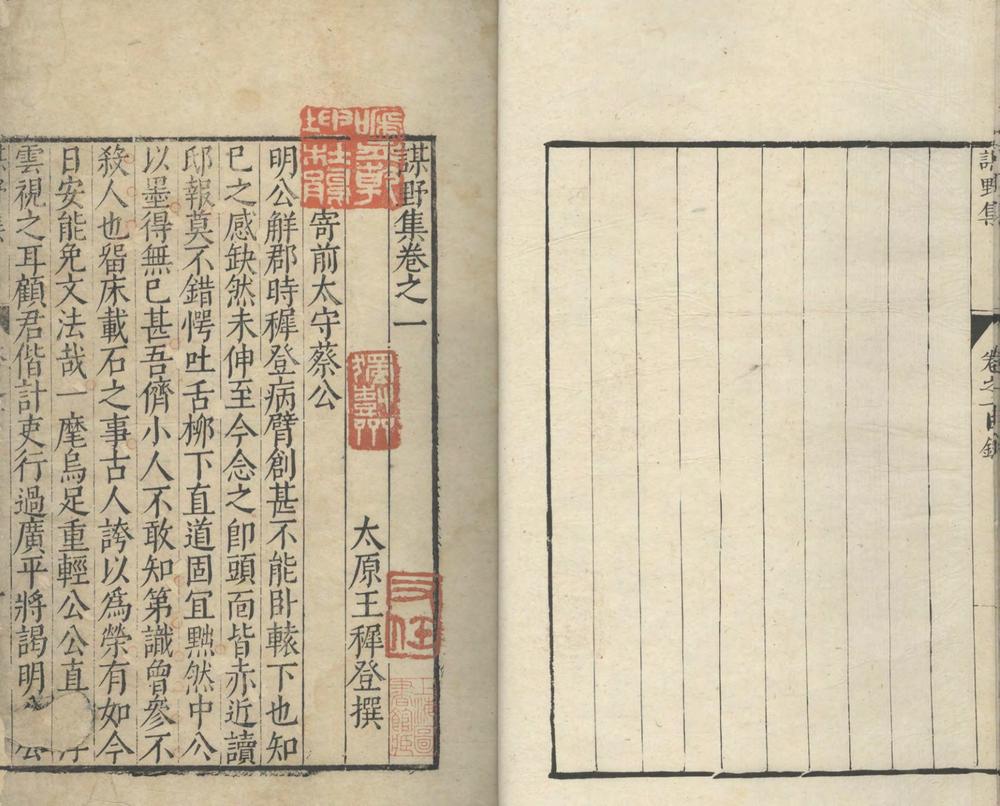 謀野集
卷之一目錄
謀野集卷之一
太原王穉登撰
寄前太守蔡公
明公解郡時穉登病臂創甚不能卧轅下也知
已之感缺然未伸至今念之卽頭面皆赤近讀
邸報莫不錯愕吐舌柳下直道固宜黜然中公
以墨得無已甚吾儕小人不敢知第識曾參不
殺人也畱床載石之事古人誇以爲榮有如今
日安能免文法哉一麾烏足重輕公公直浮
雲視之耳顧君偕計吏行過廣平將謁明公
獨壽
又任
上海圖書館藏